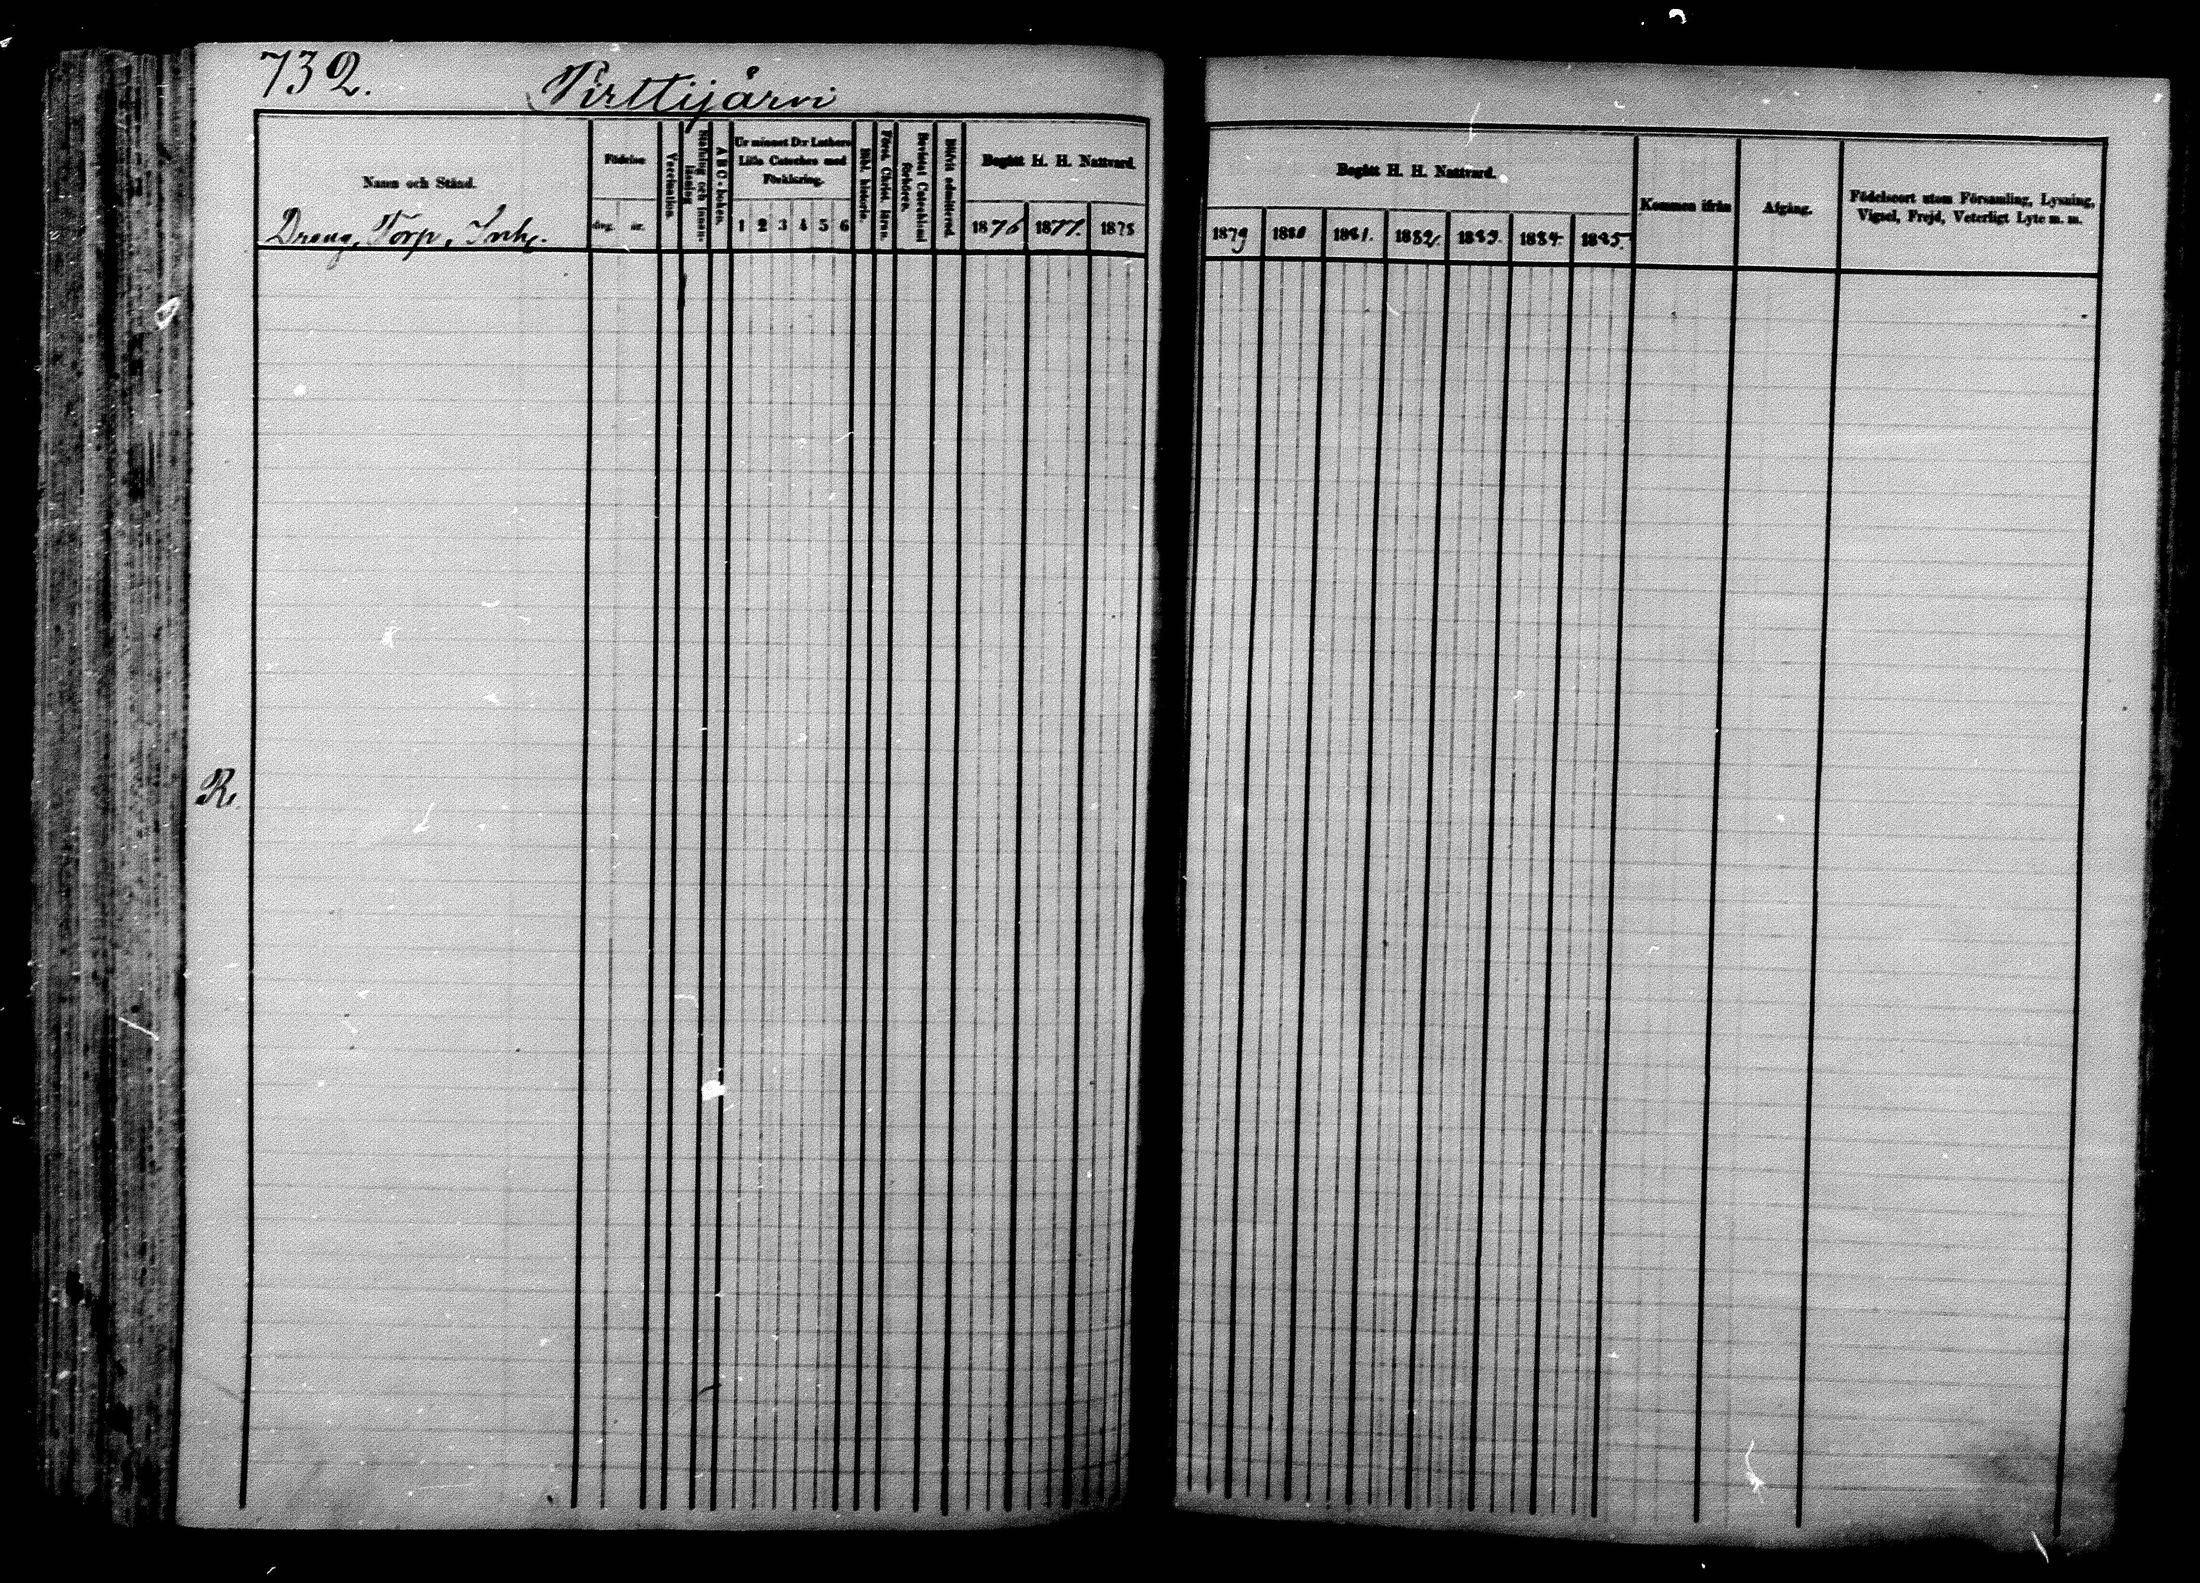 732.
Pirttijärvi
Namn och Stånd.
Dreng, Torp, Inh.
Födelse
dag. år.
Vaccination.
Stafning och innan-
läsning
A B C-boken.
Ur minnet D:r Luthers
Lilla Cateches med
Förklaring.
1 2 3 4 5 6
Bibl. historie.
Först. Christ. läran.
Bevistat Catechismi
förhören.
Blifvit admitterad.
Begått H. H. Nattvard.
1876 1877. 1878
Begått H. H. Nattvard.
1879 1880 1881. 1882. 1883. 1884. 1885.
Kommen ifrån
Afgång.
Födelseort utom Församling, Lysning,
Vigsel, Frejd, Veterligt Lyte m. m.
R.